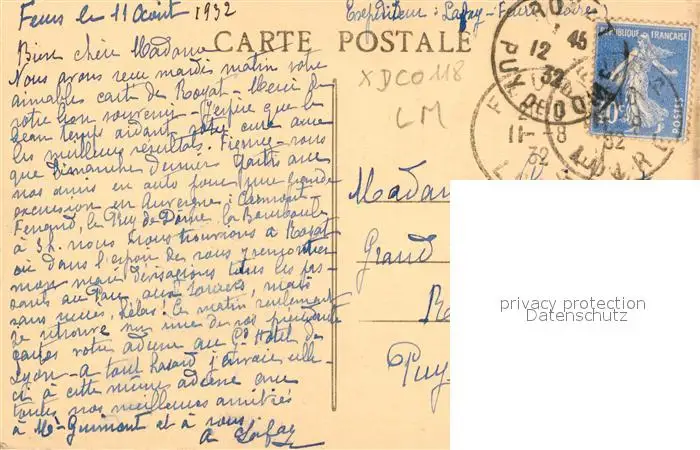 Feurs le 11 Août 1932
Expéditeur : Lafay - Feurs Loire
CARTE POSTALE
Bien chère Madame
Nous avons reçu mardi matin votre
aimable carte de Royat - Merci de
votre bon souvenir - J'espère que le
beau temps aidant votre cure aura
les meilleurs résultats. Figurez-vous
que Dimanche dernier partis avec
nos amis en auto pour une grande
excursion en Auvergne : Clermont
le Puy de Dôme, la Bourboule
à 5h. nous nous trouvions à Royat
où dans l'espoir de vous y rencontrer
mon mari dévisageait tous les pas-
sants au Parc, aux sources, mais
sans succès, hélas! le matin seulement
je retrouve sur une de vos précédentes
cartes votre adresse au Gd Hôtel de
Lyon - a tout hasard j'envoie celle-
ci à cette même adresse avec
toutes nos meilleures amitiés
à Mr Guimont et à vous.
a Lafay
XDC0118
LM
Madam
Grand
Ro
Puy
RÉPUBLIQUE FRANÇAISE
POSTES
PUY DE DOME
12
45
32
11-8
32
privacy protection
Datenschutz